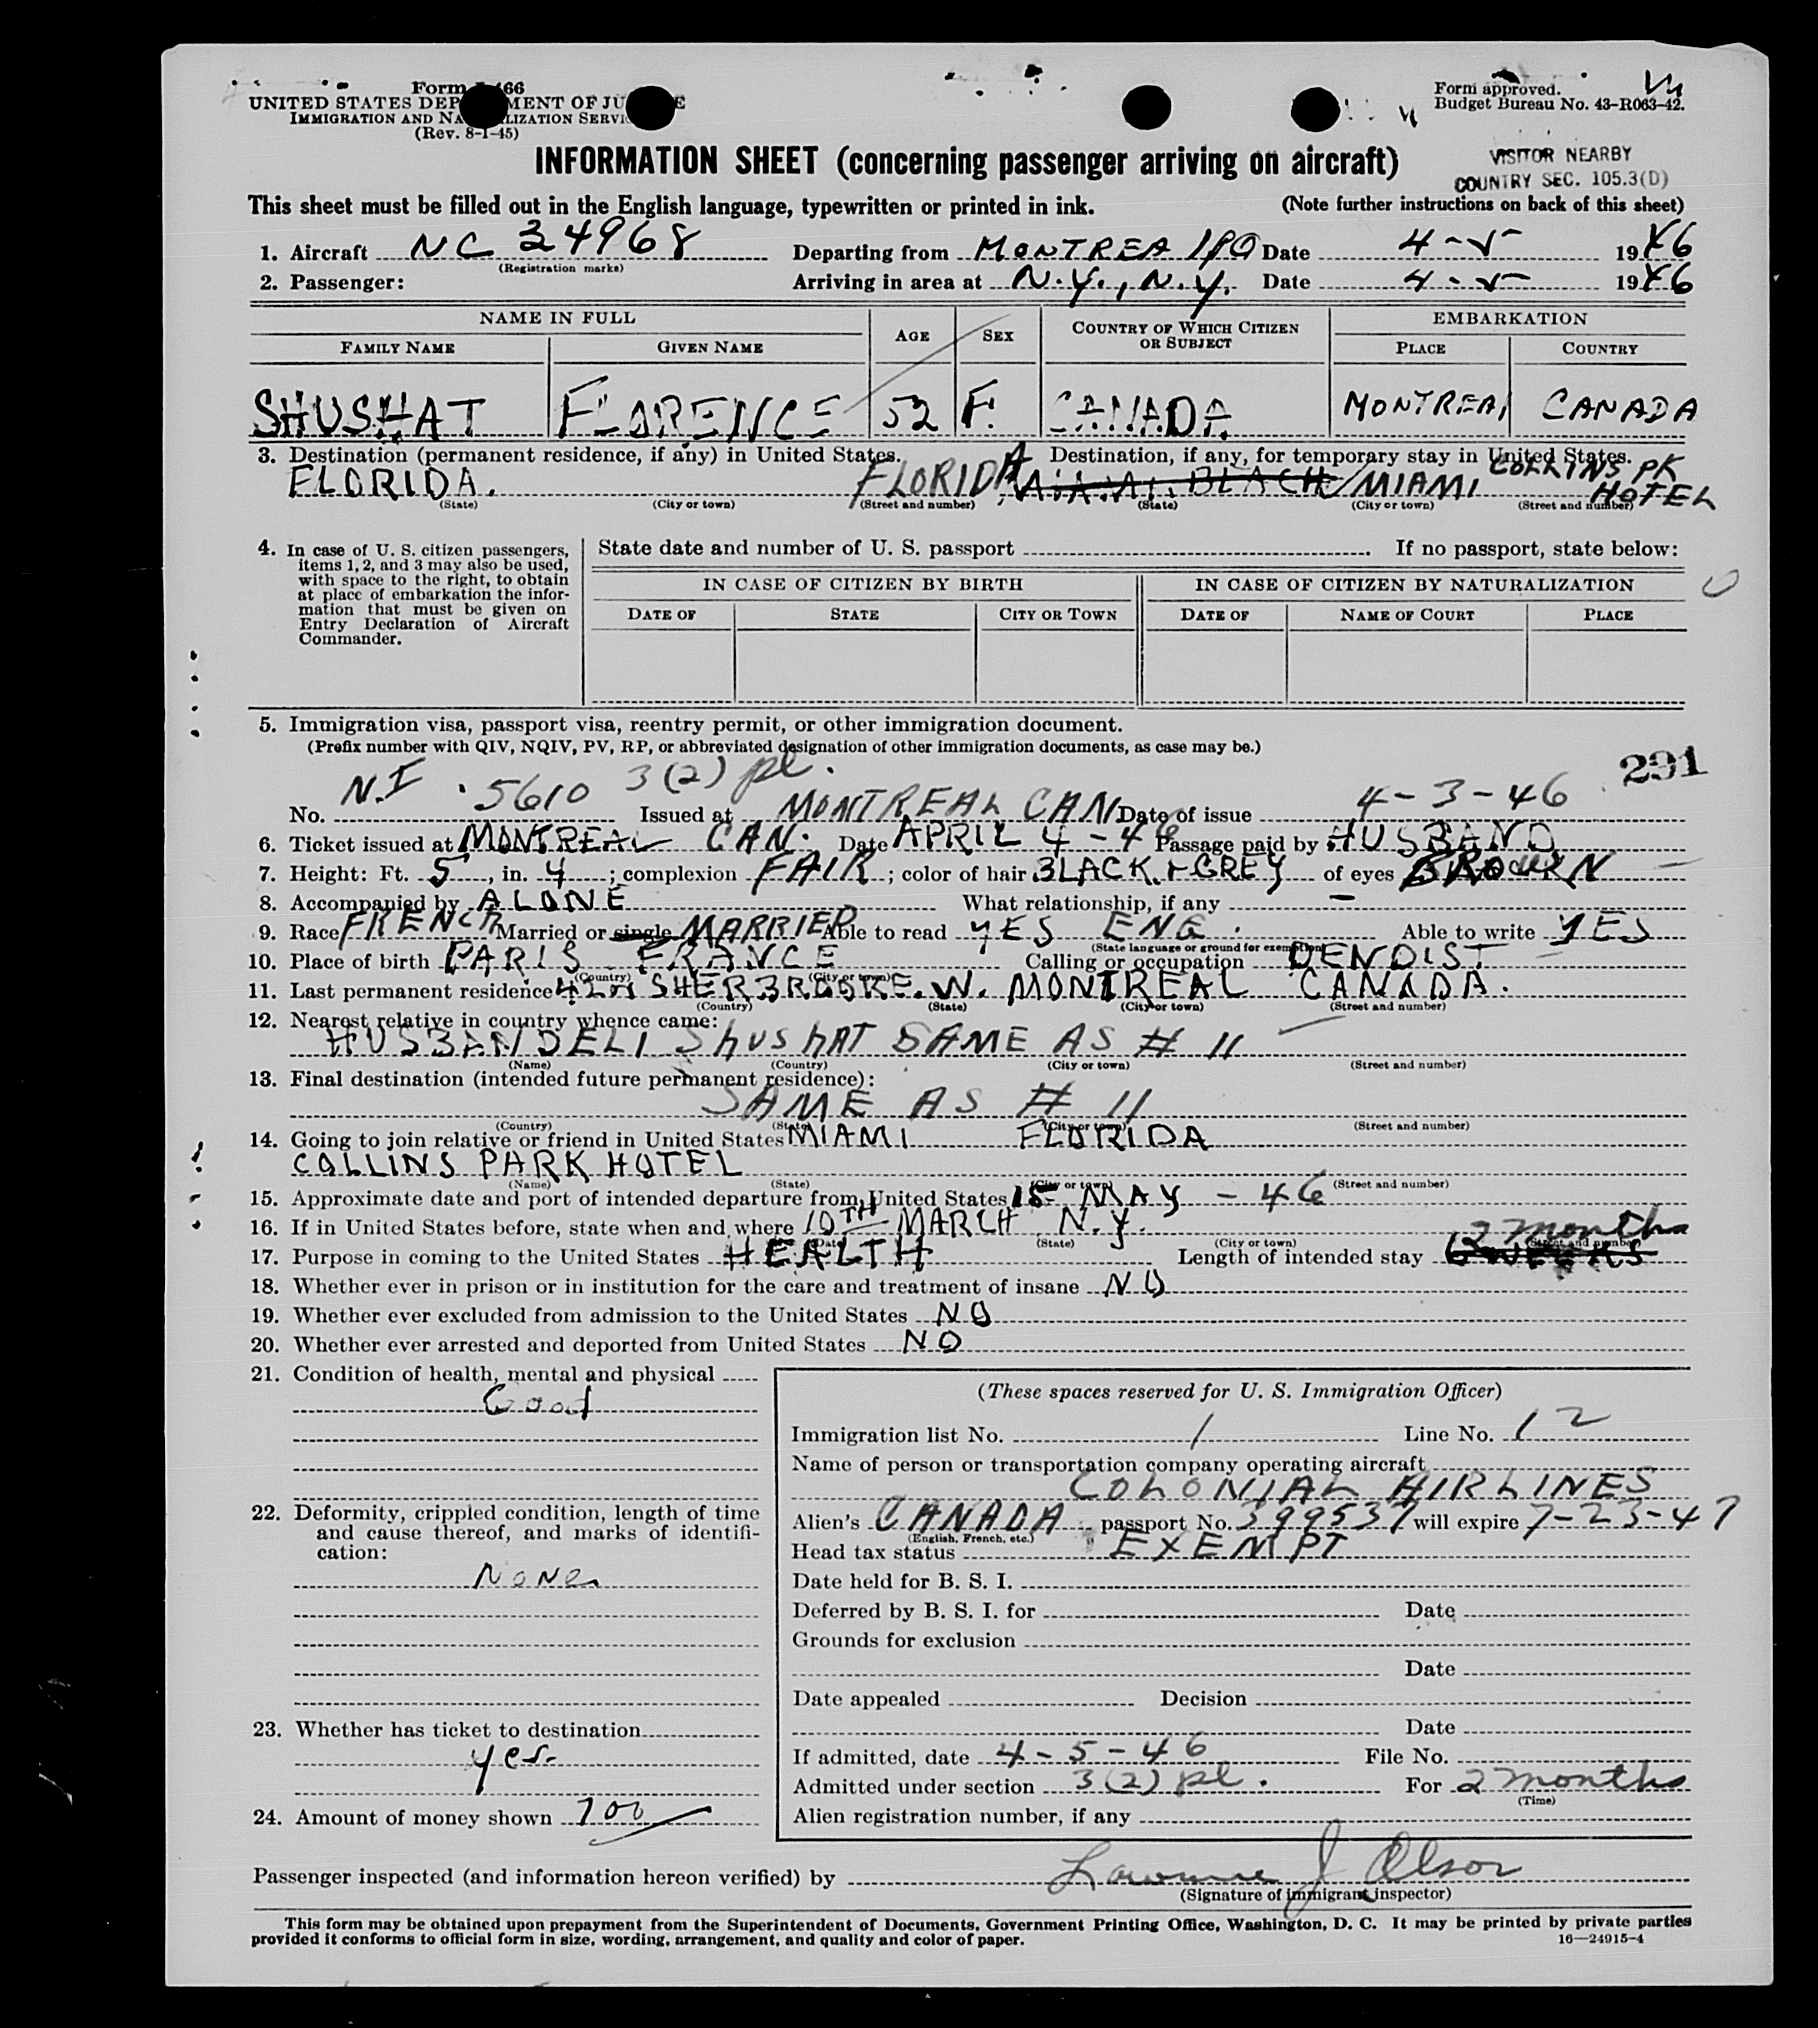 Form I-466
UNITED STATES DEPARTMENT OF JUSTICE
IMMIGRATION AND NATURALIZATION SERVICE
(Rev. 8-1-45)
Form approved.
Budget Bureau No. 43-R063-42.
INFORMATION SHEET (concerning passenger arriving on aircraft)
VISITOR NEARBY
COUNTRY SEC. 105.3(D)
This sheet must be filled out in the English language, typewritten or printed in ink. (Note further instructions on back of this sheet)
1. Aircraft NC 34968 Departing from MONTREAL PQ Date 4-5- 1946
(Registration marks)
2. Passenger: Arriving in area at N.Y., N.Y. Date 4-5- 1946
NAME IN FULL AGE SEX COUNTRY OF WHICH CITIZEN OR SUBJECT EMBARKATION
FAMILY NAME GIVEN NAME PLACE COUNTRY
SHUSHAT FLORENCE 52 F. CANADA MONTREAL CANADA
3. Destination (permanent residence, if any) in United States. Destination, if any, for temporary stay in United States.
FLORIDA. FLORIDA MIAMI BEACH MIAMI COLLINS PK HOTEL
(State) (City or town) (Street and number) (State) (City or town) (Street and number)
4. In case of U. S. citizen passengers, items 1, 2, and 3 may also be used, with space to the right, to obtain at place of embarkation the information that must be given on Entry Declaration of Aircraft Commander.
State date and number of U. S. passport . If no passport, state below:
IN CASE OF CITIZEN BY BIRTH IN CASE OF CITIZEN BY NATURALIZATION
DATE OF STATE CITY OR TOWN DATE OF NAME OF COURT PLACE
5. Immigration visa, passport visa, reentry permit, or other immigration document.
(Prefix number with QIV, NQIV, PV, RP, or abbreviated designation of other immigration documents, as case may be.)
291
No. N.I. 5610 3(2) pl. Issued at MONTREAL CAN Date of issue 4-3-46
6. Ticket issued at MONTREAL CAN. Date APRIL 4-46 Passage paid by HUSBAND
7. Height: Ft. 5, in. 4; complexion FAIR; color of hair BLACK & GREY of eyes BROWN
8. Accompanied by ALONE What relationship, if any —
9. Race FRENCH Married or single MARRIED Able to read YES ENG. Able to write YES
(State language or ground for exemption)
10. Place of birth PARIS FRANCE Calling or occupation DENDIST
(Country) (City or town)
11. Last permanent residence SHERBROOKE. W. MONTREAL CANADA.
(Country) (State) (City or town) (Street and number)
12. Nearest relative in country whence came:
HUSBAND ELI SHUSHAT SAME AS # 11
(Name) (Country) (City or town) (Street and number)
13. Final destination (intended future permanent residence):
SAME AS # 11
(Country) (State) (City or town) (Street and number)
14. Going to join relative or friend in United States MIAMI FLORIDA
COLLINS PARK HOTEL
(Name) (State) (City or town) (Street and number)
15. Approximate date and port of intended departure from United States 15 MAY - 46
16. If in United States before, state when and where 10TH MARCH N.Y.
(Date) (State) (City or town) (Street and number)
17. Purpose in coming to the United States HEALTH Length of intended stay 6 WEEKS 2 months
18. Whether ever in prison or in institution for the care and treatment of insane NO
19. Whether ever excluded from admission to the United States NO
20. Whether ever arrested and deported from United States NO
21. Condition of health, mental and physical
Good
22. Deformity, crippled condition, length of time and cause thereof, and marks of identification:
None
23. Whether has ticket to destination
yes
24. Amount of money shown 700
(These spaces reserved for U. S. Immigration Officer)
Immigration list No. 1 Line No. 12
Name of person or transportation company operating aircraft
COLONIAL AIRLINES
Alien's CANADA passport No. 399537 will expire 7-23-47
(English, French, etc.)
Head tax status EXEMPT
Date held for B. S. I.
Deferred by B. S. I. for Date
Grounds for exclusion
Date
Date appealed Decision
Date
If admitted, date 4-5-46 File No.
Admitted under section 3(2) pl. For 2 months
(Time)
Alien registration number, if any
Passenger inspected (and information hereon verified) by Lawrence J Olson
(Signature of immigrant inspector)
This form may be obtained upon prepayment from the Superintendent of Documents, Government Printing Office, Washington, D. C. It may be printed by private parties
provided it conforms to official form in size, wording, arrangement, and quality and color of paper.
16—24915-4